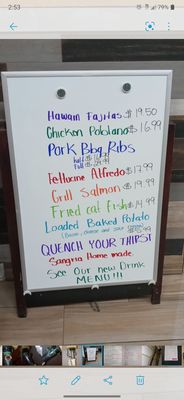 2:53
79%
Hawain Fajitas $19.50
Chicken Pololand $16.99
Pork Bbq Ribs
half $16.99
full $24.99
Fettucine Alfredo $17.99
Grill Salmon $19.99
Fried cat fish $14.99
Loaded Baked Potato
(Bacon, cheese and sour cream)
QUENCH YOUR THIRST
Sangria Home made.
See Our new Drink
MENU!!!